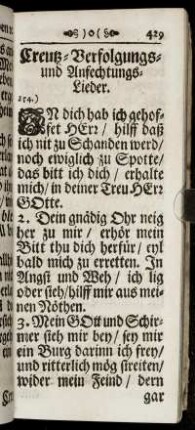 )o( 429
Creutz-Verfolgungs-
und Anfechtungs-
Lieder.
254.)
IN dich hab ich gehof-
fet HErr / hilff daß
ich nit zu Schanden werd/
noch ewiglich zu Spotte/
das bitt ich dich / erhalte
mich / in deiner Treu HErr
GOtte.
2. Dein gnädig Ohr neig
her zu mir / erhör mein
Bitt thu dich herfür / eyl
bald mich zu erretten. In
Angst und Weh / ich lig
oder steh / hilff mir aus mei-
nen Nöthen.
3. Mein GOtt und Schir-
mer steh mir bey / sey mir
ein Burg darinn ich frey /
und ritterlich mög streiten/
wider mein Feind / dern
gar